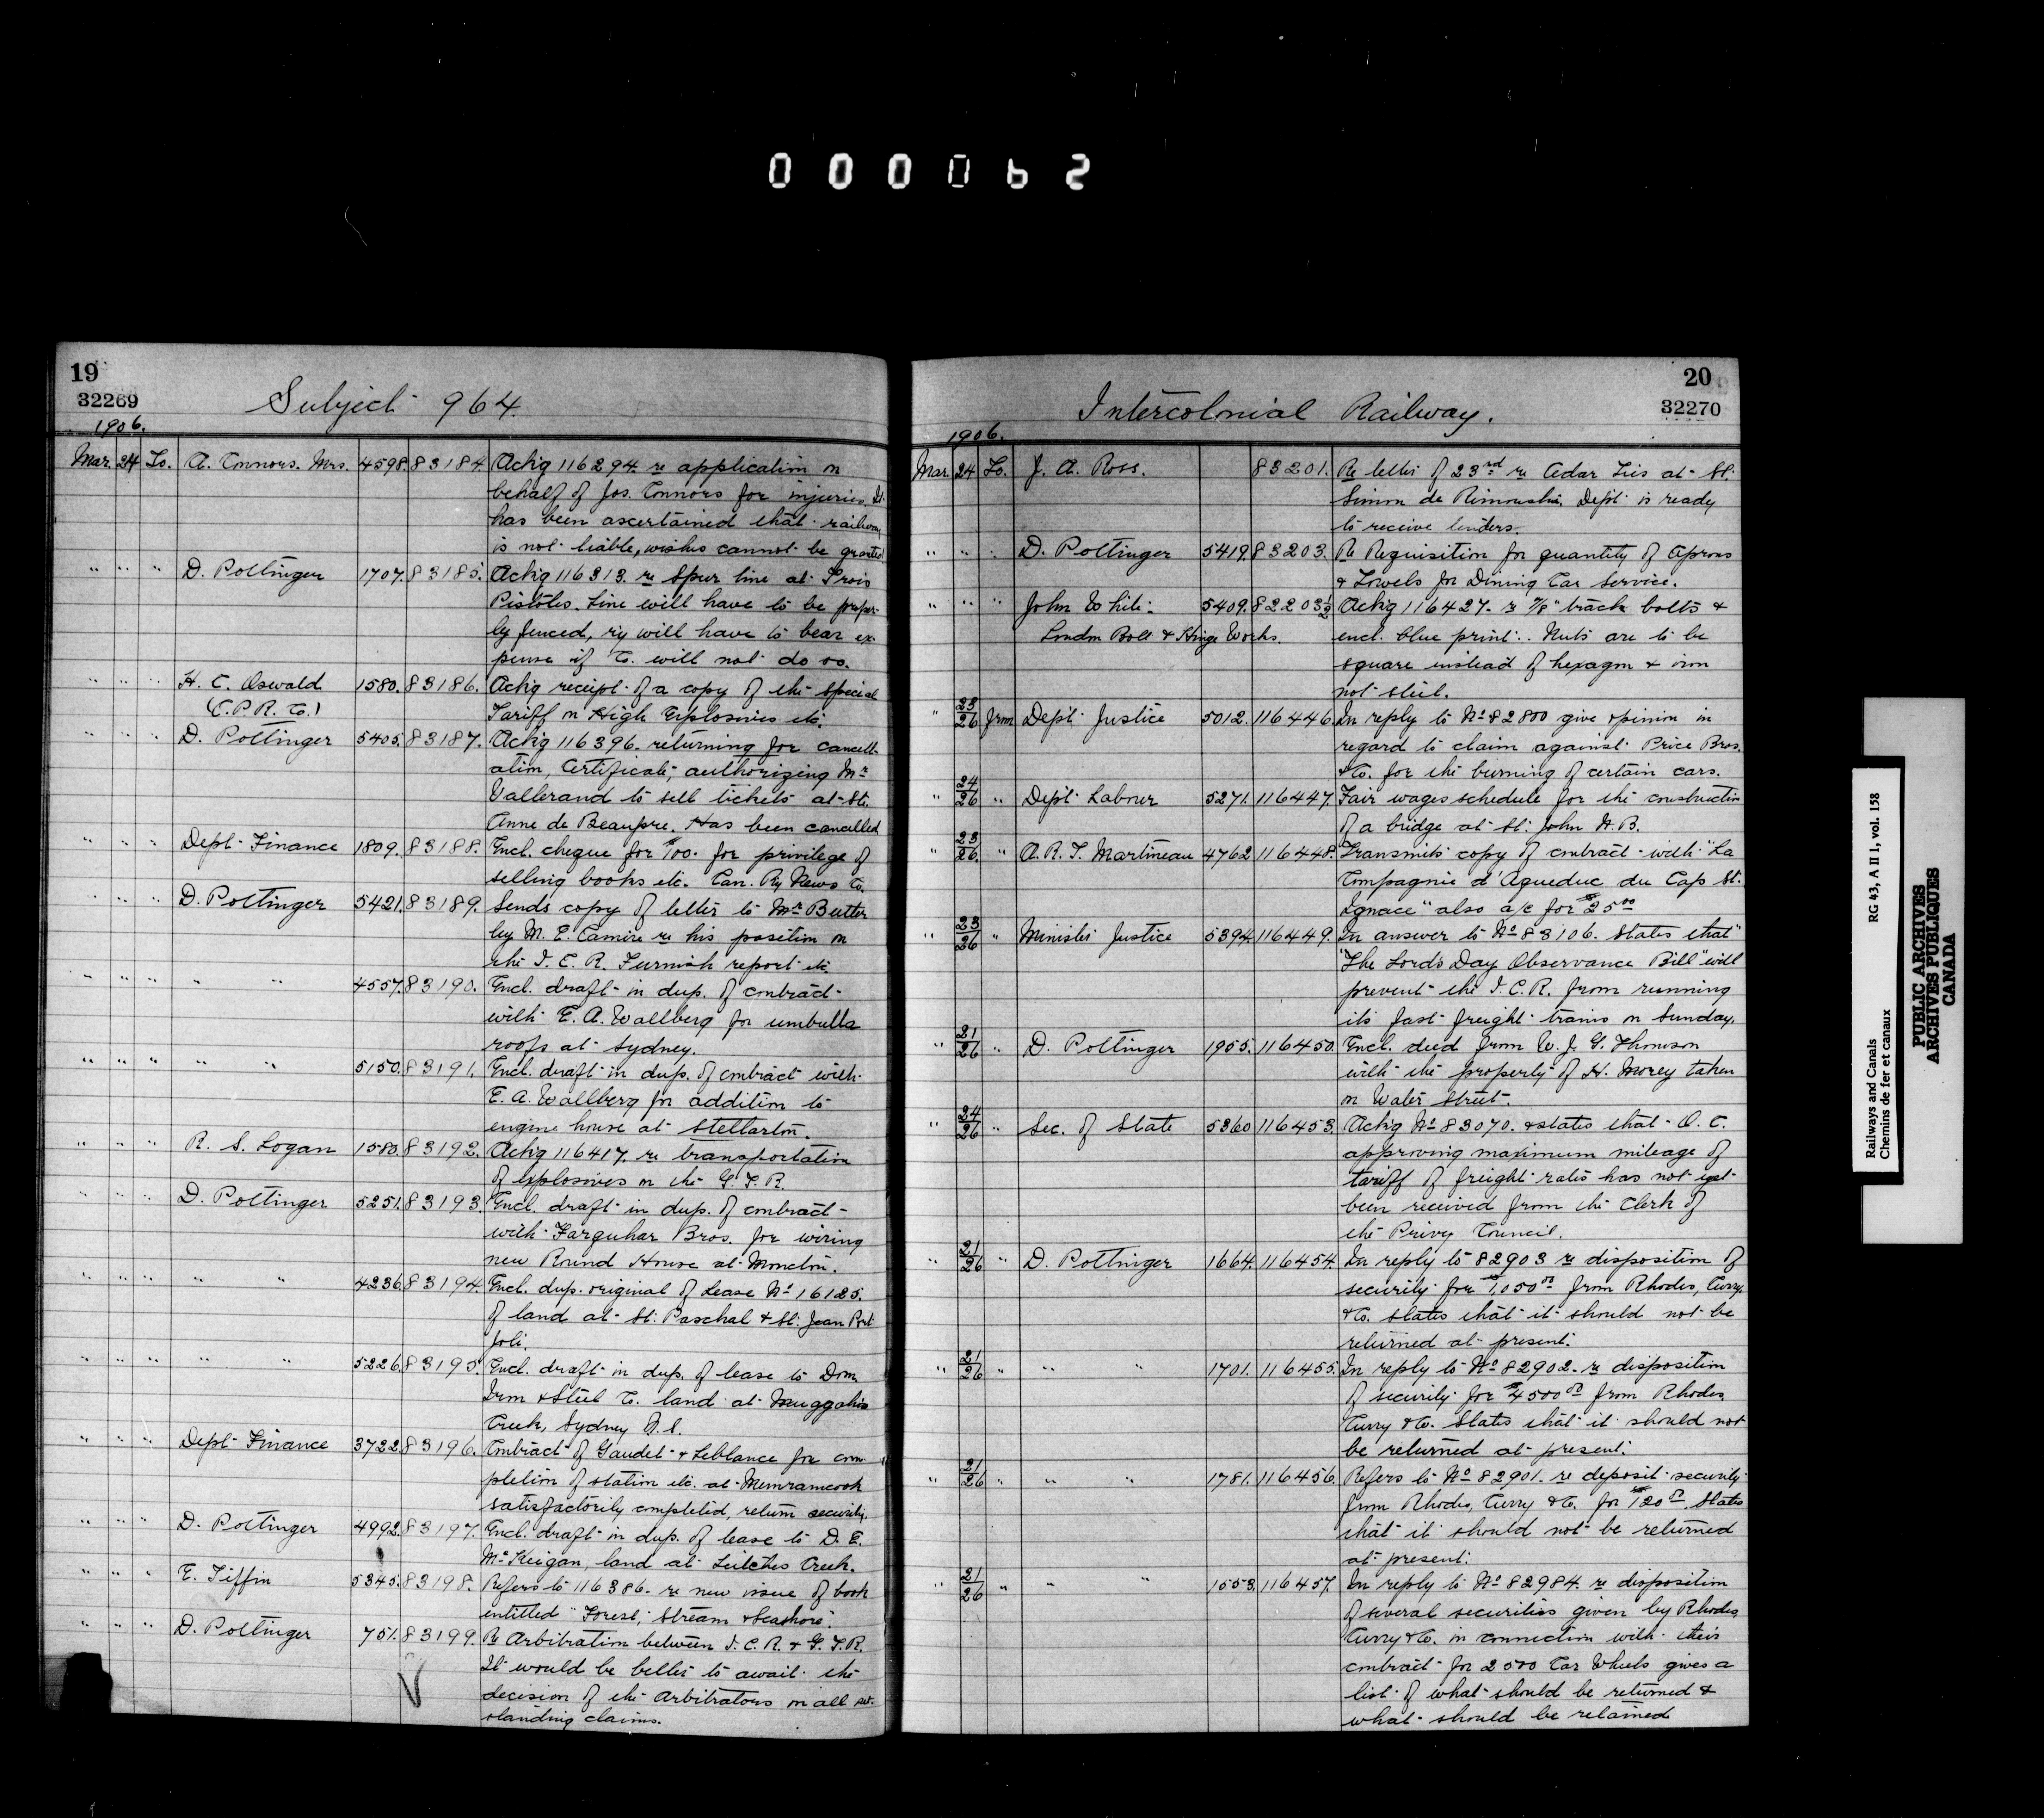 000062
19
32269
Subject 964.
1906.
Mar. 24 To. A. Connors. Mrs. 4598. 83184. Ackg 116294. re application on
behalf of Jos. Connors for injuries. It
has been ascertained that railway
is not liable, wishes cannot be granted
" " " D. Pottinger 1707. 83185. Ackg 116313. re Spur line at Trois
Pistoles. Line will have to be proper-
ly fenced, ry will have to bear ex-
pense if Co. will not do so.
" " " H. C. Oswald 1580. 83186. Ackg receipt of a copy of the special
(C.P.R. Co.) Tariff on High Explosives etc.
" " " D. Pottinger 5405. 83187. Ackg 116396. returning for cancell-
ation, Certificate, authorizing Mr
Vallerand to sell tickets at Ste.
Anne de Beaupre. Has been cancelled
" " " Dept Finance 1809. 83188. Encl. cheque for $100. for privilege of
selling books etc. Can. Ry News Co.
" " " D. Pottinger 5421. 83189. Sends copy of letter to Mr Butler
by M. E. Camire re his position on
the I. C. R. Furnish report etc.
" " " " " 4557. 83190. Encl. draft in dup. of contract
with E. A. Wallberg for umbrella
roofs at Sydney.
" " " " " 5150. 83191. Encl. draft in dup. of contract with
E. A. Wallberg for addition to
engine house at Stellarton.
" " " R. S. Logan 1580. 83192. Ackg 116417. re transportation
of explosives on the G. T. R.
" " " D. Pottinger 5251. 83193. Encl. draft in dup. of contract
with Farquhar Bros. for wiring
new Round House at Moncton.
" " " " " 4236. 83194. Encl. dup. original of Lease No 16125.
of land at St. Paschal & St. Jean Port
Joli.
" " " " " 5226. 83195. Encl. draft in dup. of lease to Dom.
Iron & Steel Co. land at Muggahs
Creek, Sydney N.S.
" " " Dept Finance 3722. 83196. Contract of Gaudet & Leblance for com-
pletion of station etc. at Memramcook
satisfactorily completed, return security.
" " " D. Pottinger 4992. 83197. Encl. draft in dup. of lease to D. E.
McKeigan, land at Leitches Creek.
" " " E. Tiffin 5345. 83198. Refers to 116386. re new issue of book
entitled "Forest, Stream & Seashore".
" " " D. Pottinger 751. 83199. Re Arbitration between I. C. R. & G. T. R.
It would be better to await the
decision of the Arbitrators on all out-
standing claims.
20
32270
Intercolonial Railway.
1906.
Mar. 24 To. J. A. Ross. 83201. Re letter of 23rd re Cedar Ties at St.
Simon de Rimouski. Dept is ready
to receive tenders.
" " " D. Pottinger 5419. 83203. Re Requisition for quantity of Aprons
& Towels for Dining Car Service.
" " " John White 5409. 82203½ Ackg 116427. re 7/8" track bolts &
London Bolt & Hinge Works. encl. blue print. Nuts are to be
square instead of hexagon & iron
not steel.
" 23/26 from Dept Justice 5012. 116446. In reply to No 82800 give opinion in
regard to claim against Price Bros.
& Co. for the burning of certain cars.
" 24/26 " Dept Labour 5271. 116447. Fair wages schedule for the construction
of a bridge at St. John N.B.
" 23/26 " A. R. T. Martineau 4762 116448. Transmits copy of contract with "La
Compagnie d'Aqueduc du Cap St.
Ignace" also a/c for $25.00
" 23/26 " Minister Justice 5394 116449. In answer to No 83106. States that
"The Lord's Day Observance Bill" will
prevent the I. C. R. from running
its fast freight trains on Sunday.
" 21/26 " D. Pottinger 1955. 116450. Encl. deed from W. J. G. Thomson
with the property of H. Morey taken
on Water Street.
" 24/26 " Sec. of State 5360 116453. Ackg No 83070. & states that O. C.
approving maximum mileage of
tariff of freight rates has not yet
been received from the Clerk of
the Privy Council.
" 21/26 " D. Pottinger 1664. 116454. In reply to 82903 re disposition of
security for $1,050.00 from Rhodes, Curry,
& Co. states that it should not be
returned at present.
" 21/26 " " " 1701. 116455. In reply to No 82902. re disposition
of security for $4500.00 from Rhodes
Curry & Co. States that it should not
be returned at present.
" 21/26 " " " 1781. 116456. Refers to No 82901. re deposit security
from Rhodes, Curry & Co. for $120.00. States
that it should not be returned
at present.
" 21/26 " " " 1553. 116457. In reply to No 82984. re disposition
of several securities given by Rhodes
Curry & Co. in connection with their
contract for 2500 Car Wheels gives a
list of what should be returned &
what should be retained
Railways and Canals
Chemins de fer et canaux
RG 43, A II 1, vol. 158
PUBLIC ARCHIVES
ARCHIVES PUBLIQUES
CANADA